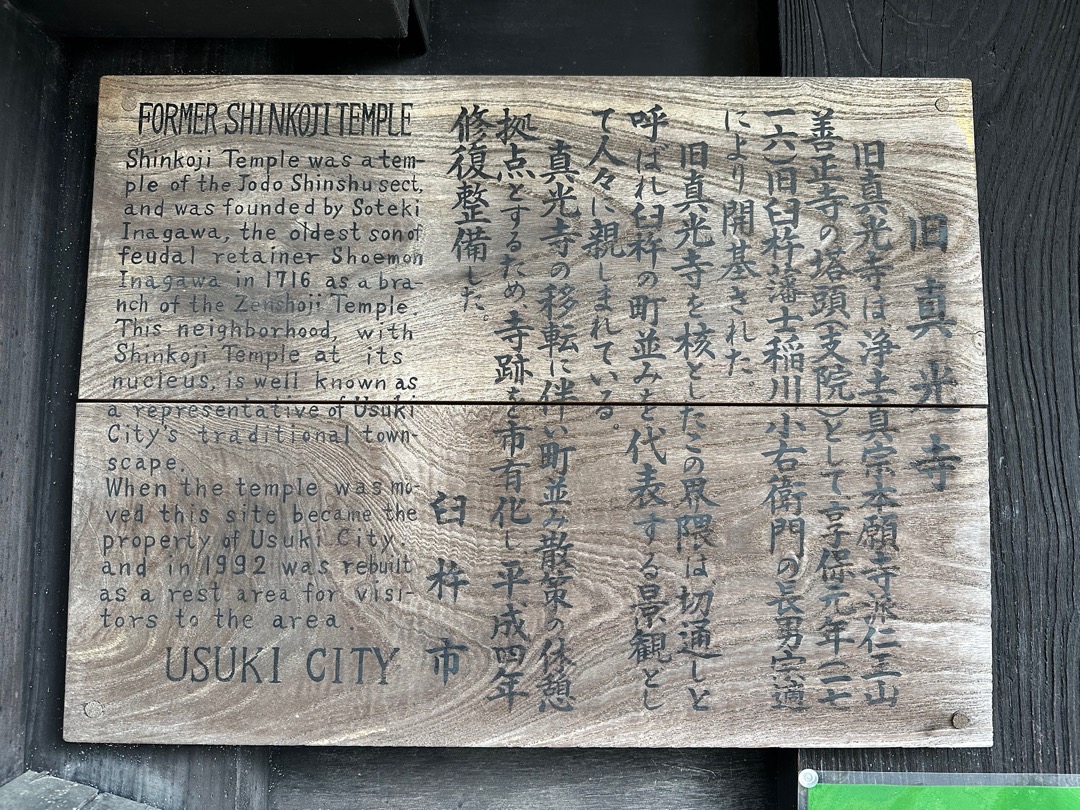 旧真光寺
旧真光寺は浄土真宗本願寺派仁王山
善正寺の塔頭(支院)として享保元年(一七
一六)旧臼杵藩士稲川小右衛門の長男宗適
により開基された。
旧真光寺を核としたこの界隈は切通しと
呼ばれ臼杵の町並みを代表する景観とし
て人々に親しまれている。
真光寺の移転に伴い町並み散策の休憩
拠点とするため、寺跡を市有化し平成四年
修復整備した。
臼杵市
FORMER SHINKOJI TEMPLE
Shinkoji Temple was a tem-
ple of the Jodo Shinshu sect,
and was founded by Soteki
Inagawa, the oldest son of
feudal retainer Shoemon
Inagawa in 1716 as a bra-
nch of the Zenshoji Temple.
This neighborhood, with
Shinkoji Temple at its
nucleus, is well known as
a representative of Usuki
City's traditional town-
scape.
When the temple was mo-
ved this site became the
property of Usuki City.
and in 1992 was rebuilt
as a rest area for visi-
tors to the area.
USUKI CITY